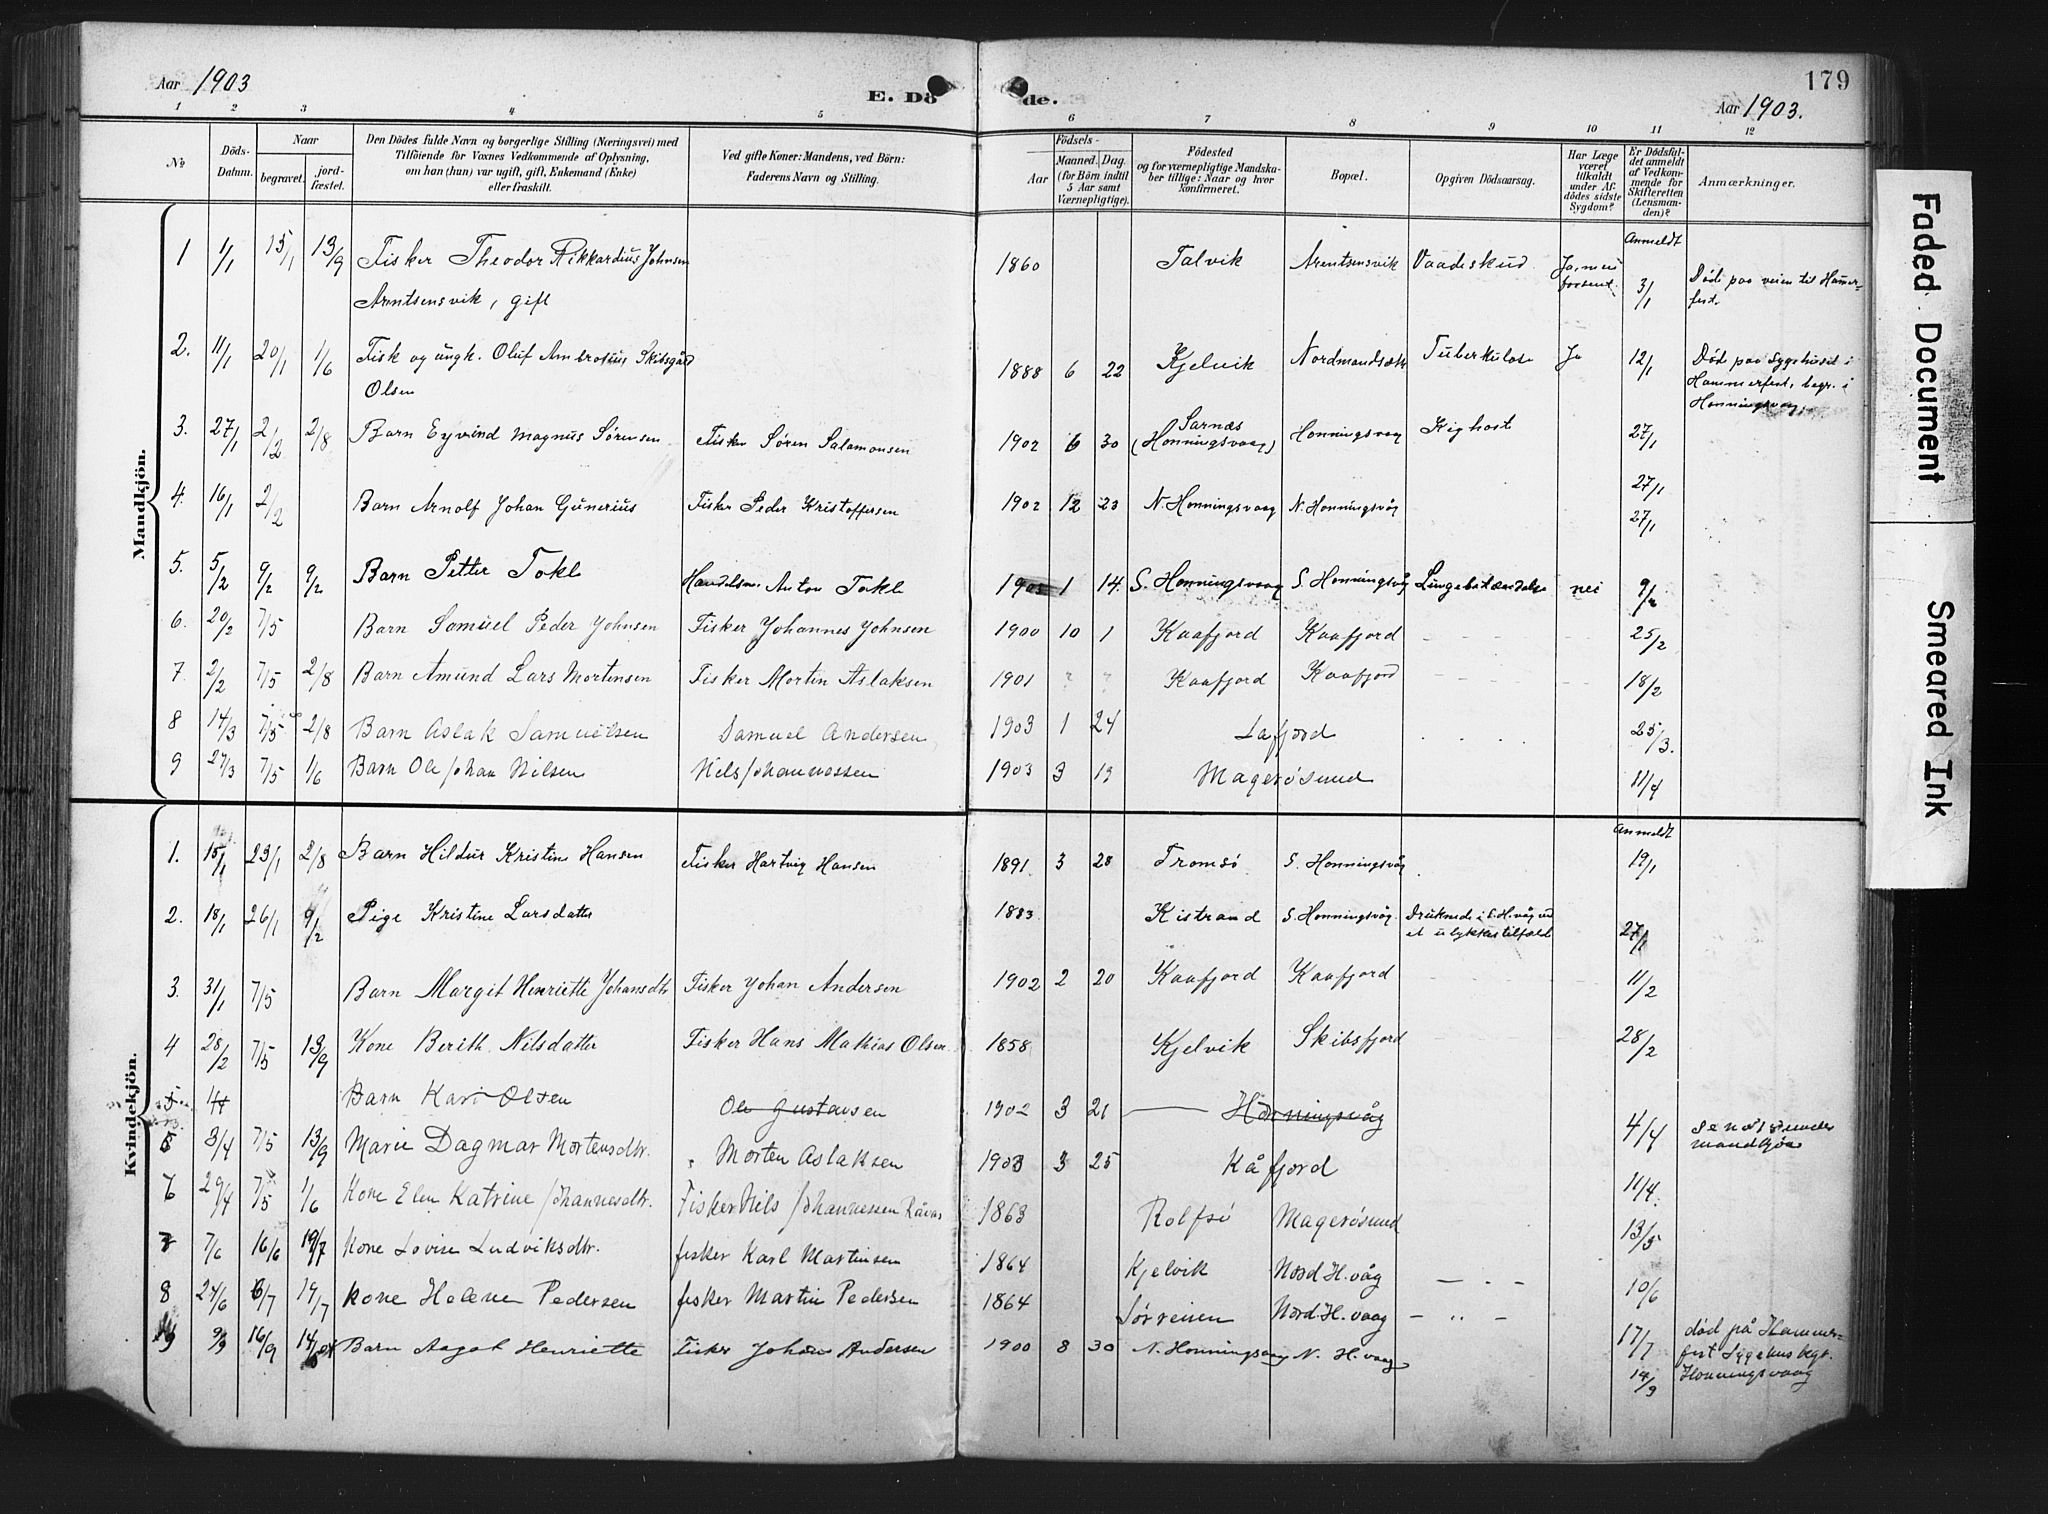 Aar 1903
E. Døde.
179
Aar 1903.
1 2 3 4 5 6 7 8 9 10 11 12
No
Döds-Datum.
Naar
begravet.
jord-fæstet.
Den Dödes fulde Navn og borgerlige Stilling (Næringsvei) med
Tilföiende for Voxnes Vedkommende af Oplysning,
om han (hun) var ugift, gift, Enkemand (Enke)
eller fraskilt.
Ved gifte Koner: Mandens, ved Börn:
Faderens Navn og Stilling.
Födsels-
Aar
Maaned. Dag.
(for Börn indtil
5 Aar samt
Værnepligtige).
Födested
og for værnepligtige Mandska-
ber tillige: Naar og hvor
konfirmeret.
Bopæl.
Opgiven Dödsaarsag.
Har Læge
været
tilkaldt
under Af-
dödes sidste
Sygdom?
Er Dödsfal-
det anmeldt
af Vedkom-
mende for
Skifteretten
(Lensman-
den)?
Anmærkninger.
Mandkjön.
Anmeldt
1 1/1 15/1 13/9 Fisker Theodor Rikkardius Johnsen 1860 Talvik Arentsensvik Vaadeskud Ja, men
Arentsensvik, gift forsent. 3/1 Döde paa veien til Hamer-
fest.
2. 11/1 20/1 1/6 Fisk og ungk. Oluf Ambrosius Skibsgård 1888 6 22 Kjelvik Tuberkulose Ja 12/1 Död paa Sygehuset i
Olsen Hammerfest, begr. i
Honningsvaag.
3. 27/1 2/2 2/8 Barn Eyvind Magnus Sörensen Fisker Sören Salamonsen 1902 6 30 Sarnæs (Honningsvaag) Honningsvaag Kighoste 27/1
4. 16/1 2/2 Barn Arnolf Johan Gunerius Fisker Peder Kristoffersen 1902 12 23 N. Honningsvaag N. Honningsvåg 27/1
27/1
5. 5/2 9/2 9/2 Barn Petter Tokle Handelsm. Anton Tokle 1903 1 14. S. Honningsvaag S. Honningsvåg Lungebetændelse nei 9/2
6. 20/2 7/5 Barn Samuel Peder Johnsen Fisker Johannes Johnsen 1900 10 1 Kaafjord Kaafjord 25/2
7. 2/2 7/5 2/8 Barn Amund Lars Mortensen Fisker Morten Aslaksen 1901 ? ? Kaafjord Kaafjord 18/2
8 14/3 7/5 2/8 Barn Aslak Samuelsen Samuel Andersen 1903 1 24 Lafjord 25/3.
9 27/3 7/5 1/6 Barn Ole Johan Nilsen Nils Johannessen 1903 3 19 Magerösund 11/4
Kvindekjön.
Anmeldt
1. 15/1 23/1 2/8 Barn Hildur Kristine Hansen Fisker Hartvig Hansen 1891 3 28 Tromsö S. Honningsvåg 19/1
2. 18/1 26/1 9/2 Pige Kristine Larsdatter 1883 Kistrand S. Honningsvåg. Druknede i S. H.våg ved
et ulykkestilfælde 27/1
3. 31/1 7/5 Barn Margit Henriette Johansdtr Fisker Johan Andersen 1902 2 20 Kaafjord Kaafjord 11/2
4 28/2 7/5 13/9 Kone Berith Nilsdatter Fisker Hans Mathias Olsen 1858 Kjelvik Skibsfjord 28/2
5 Barn Kari Olsen Ole Gustavsen 1902 3 21 Honningsvåg
5 3/4 7/5 13/9 Marie Dagmar Mortensdtr. Morten Aslaksen 1903 3 25 Kåfjord 4/4 se no under
mandkjön
6 29/4 7/5 1/6 Kone Elen Katrine Johannesdtr. Fisker Nils Johannessen 1863 Rolfsö Magerösund 11/4.
7 7/6 16/6 19/7 Kone Lovise Ludviksdtr. fisker Karl Martinsen 1864 Kjelvik Nord H.våg 13/5
8 24/6 6/7 19/7 kone Helene Pedersen fisker Martin Pedersen 1864 Sörreisen Nord. H. vaag 10/6
9 9/9 16/9 Barn Aagot Henriette Fisker Johan Andersen 1900 8 30 N. Honningsvaag N. H. vaag 17/7 död på Hammer-
fest Sygehus begr.
14/9 Honningsvaag
Faded Document
Smeared Ink